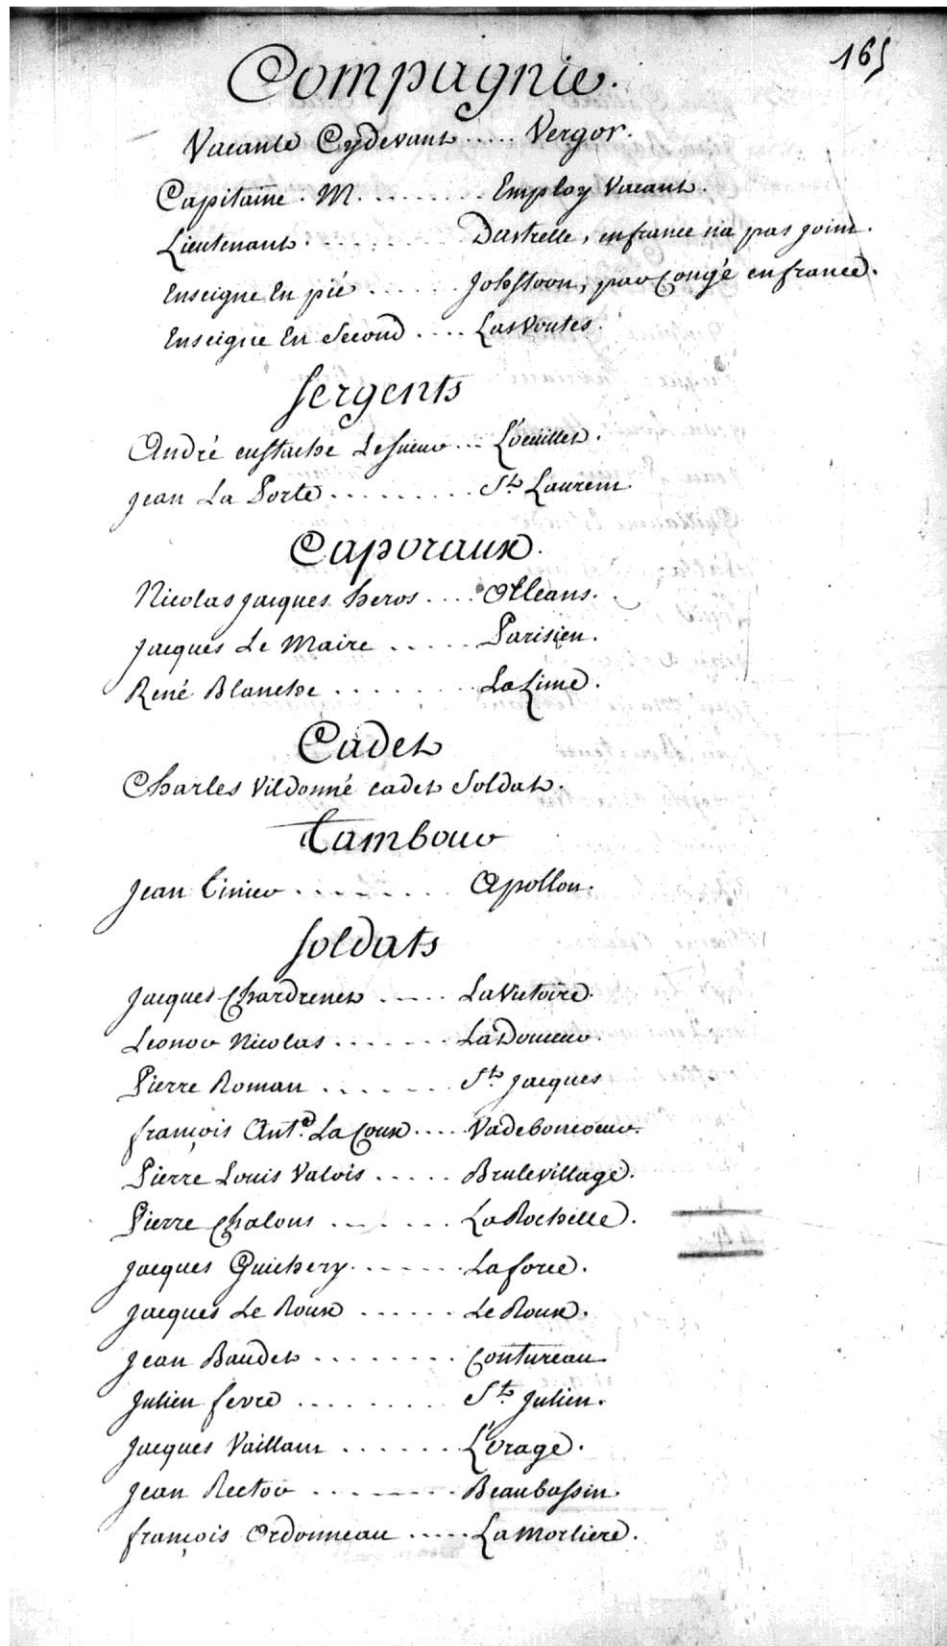 165
Compagnie.
Vacante Cydevant ..... Vergor.
Capitaine. M. ........ Employ Vacant.
Lieutenant. ......... Dastrelle, enfrance n'a pas joint.
Enseigne En pié ...... Johstoon, par Congé enfrance.
Enseigne En Second .... Las Voutes.
Sergents
André eustache Lesueur ... L'oeuillet.
Jean La Porte ......... St. Laurent.
Caporaux.
Nicolas jacques heros .... Orleans.
Jacques Le Maire ..... Parisien.
René Blanche ........ La Lime.
Cadet
Charles Vildonné cadet Soldat.
Tambour
Jean ........ Apollon.
Soldats
Jacques Chardrenet ..... La Victoire.
Leonor Nicolas ....... La Douceur.
Pierre Roman ...... St. Jacques
françois Ant.e La Coux .... Vadeboncoeur.
Pierre Louis Valois ..... Brulevillage.
Pierre Chalout ....... La Rochelle.
Jacques Guichery. ...... La force.
Jacques Le Roux ...... Le Roux.
Jean Baudet ........ Coutureau
Julien fevre ........ St. Julien.
Jacques Vaillant ...... L'orage.
Jean Rector ........ Beaubassin.
françois Ordonneau ..... La Morliere.